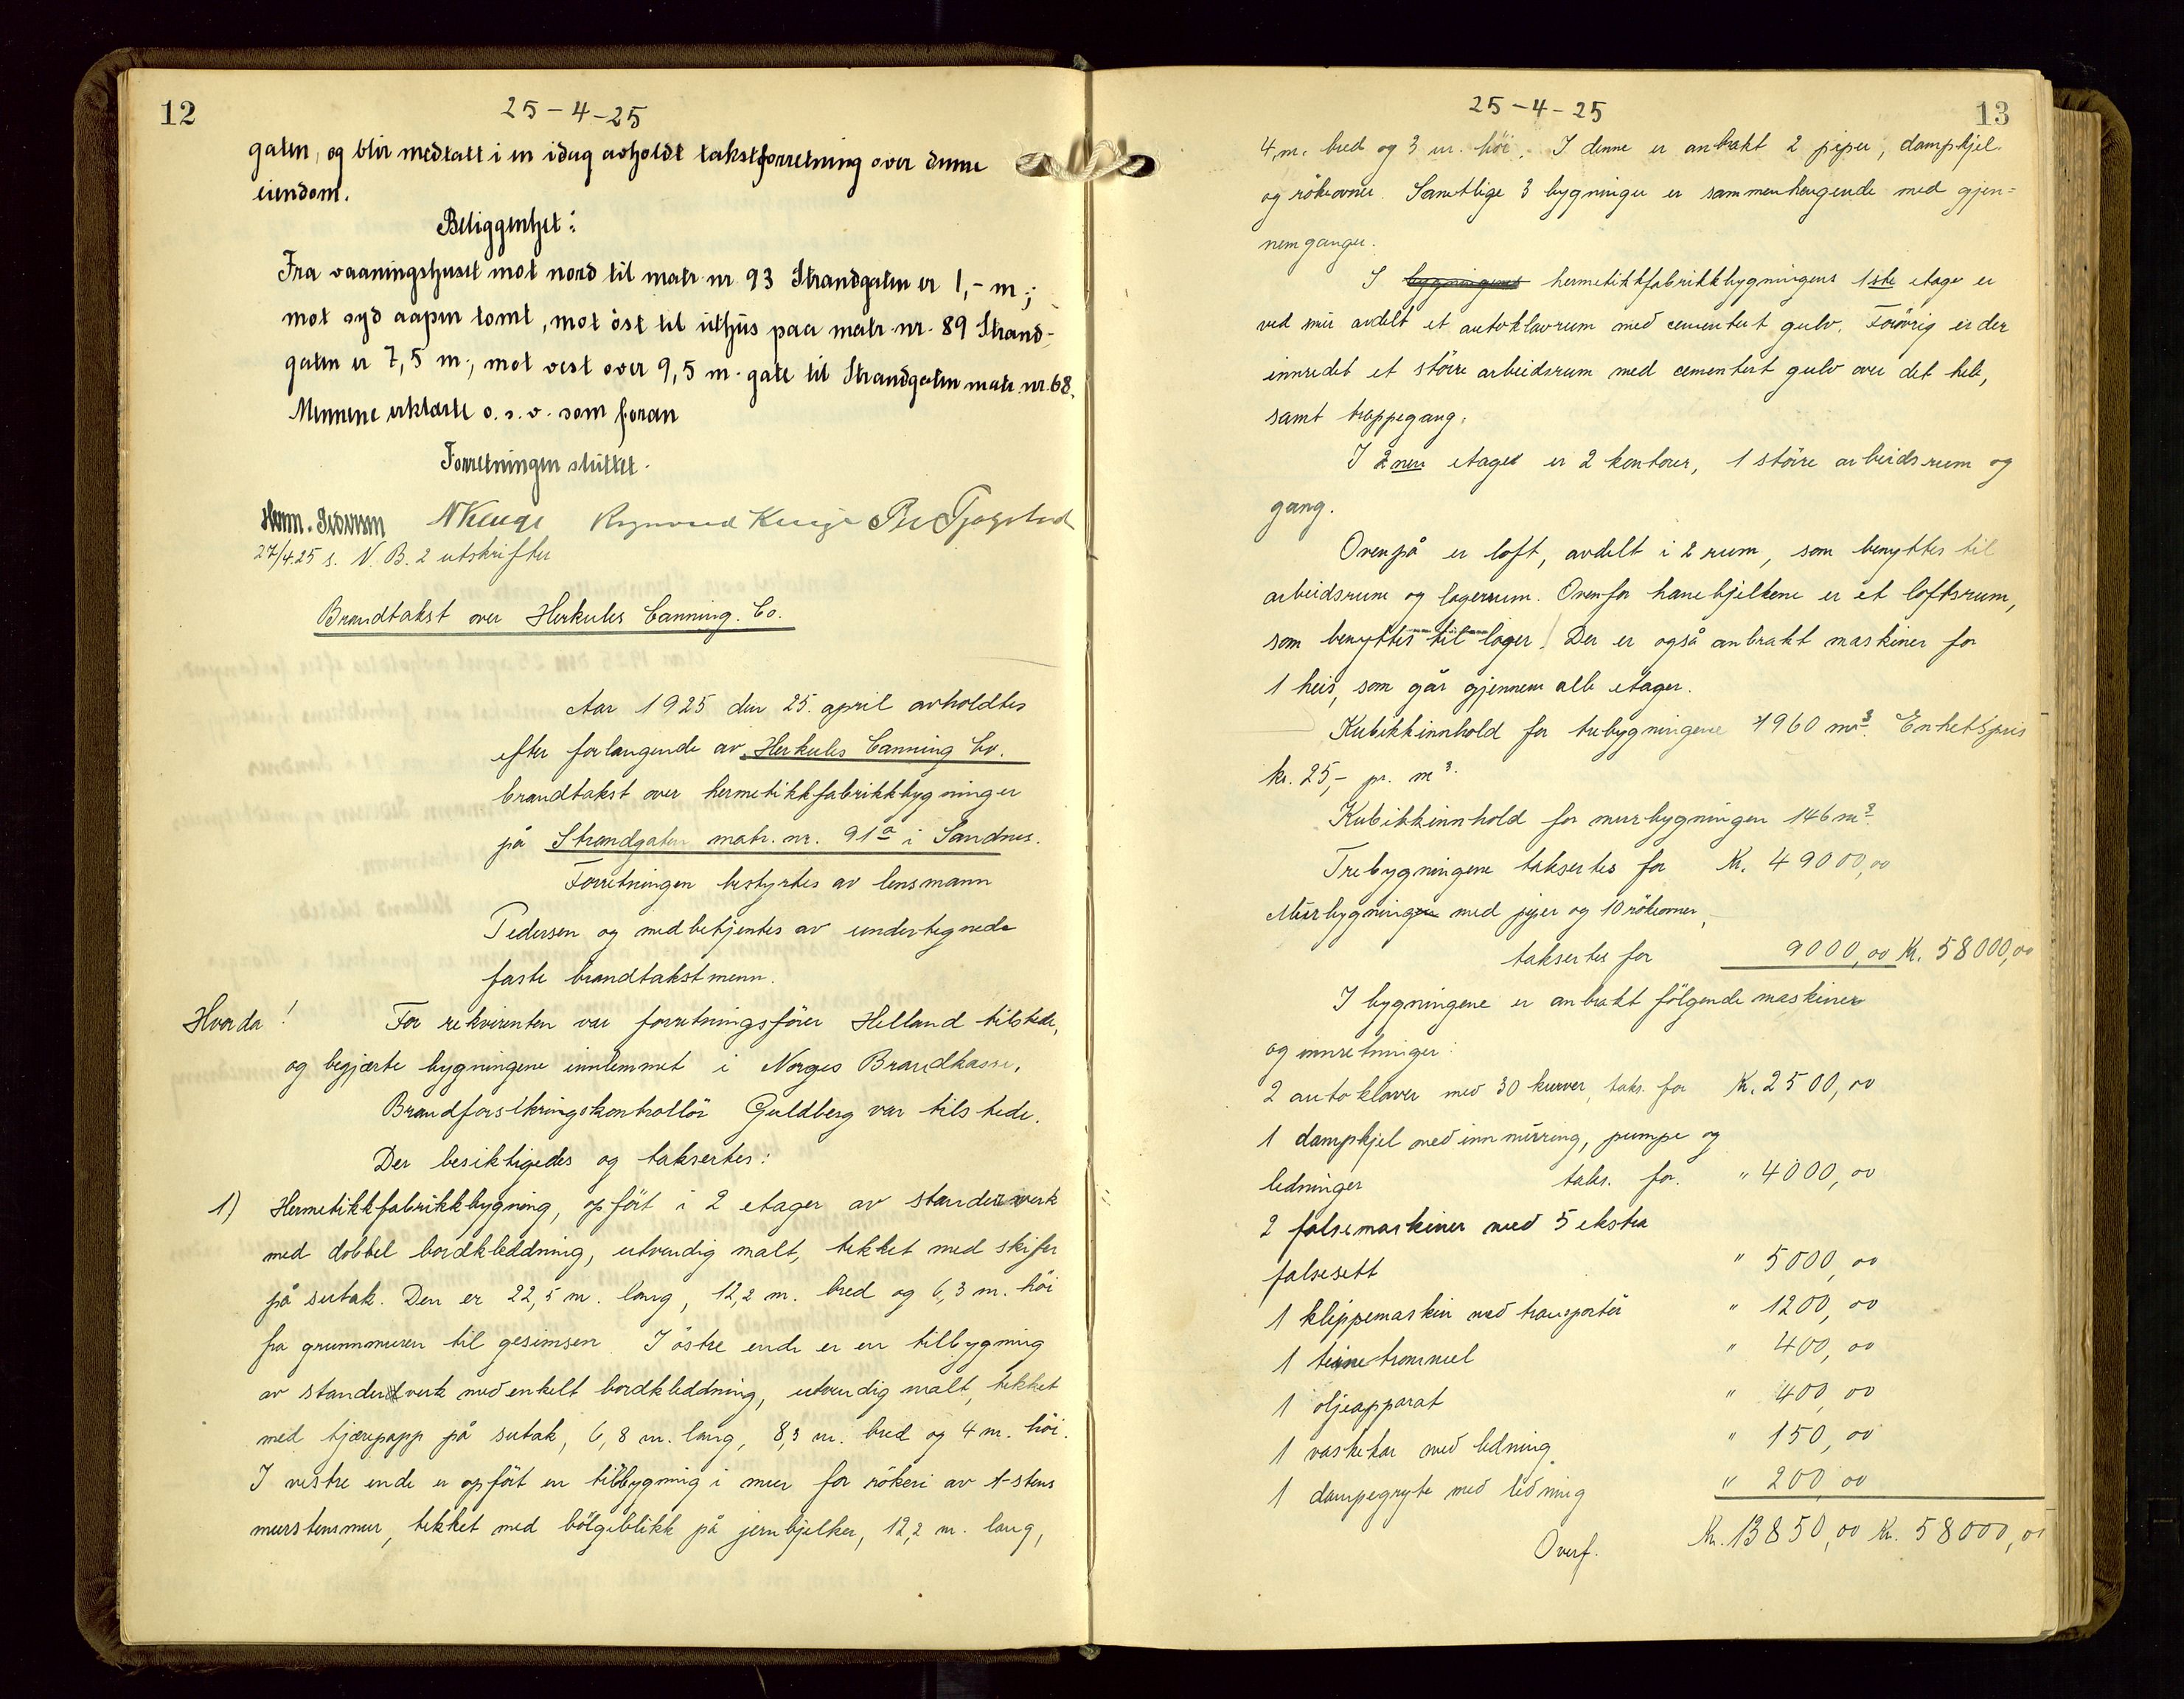 12
25-4-25
gaten, og blir medtatt i en idag avholdt takstforretning over denne
eiendom.
Beliggenhet:
Fra vaaningshuset mot nord til matr. nr. 93 Strandgaten er 1,- m.;
mot syd aapen tomt, mot öst til uthus paa matr. nr. 89 Strand-
gaten er 7,5 m., mot vest over 9,5 m. gate til Strandgaten matr. nr. 68.
Mennene erklærte o.s.v. som foran
Forretningen sluttet.
27/4.25 s. N. B. 2 utskrifter
Brandtakst over Herkules Canning. Co.
Aar 1925 den 25. april avholdtes
efter forlangende av Herkules Canning Co.
brandtakst over hermetikkfabrikkbygninger
på Strandgaten matr. nr. 91a i Sandnes.
Forretningen bestyrtes av lensmann
Pedersen og medbetjentes av undertegnede
faste brandtakstmenn.
Hvorda! For rekvirenten var forretningsförer Helland tilstede,
og begjærte bygningene innlemmet i Norges Brandkasse.
Brandforsikringskontrollör Guldberg var tilstede.
Der besiktigedes og taksertes:
1) Hermetikkfabrikkbygning, opfört i 2 etager av standerverk
med dobbel bordkleddning, utvendig malt, tekket med skifer
på sutak. Den er 22,5 m. lang, 12,2 m. bred og 6,3 m. höi
fra grunnmuren til gesimsen. I östre ende er en tilbygning
av standerverk med enkelt bordkleddning, utvendig malt, tekket
med tjærepapp på sutak, 6,8 m. lang, 8,3 m. bred og 4 m. höi.
I vestre ende er opfört en tilbygning i mur for rökeri av 1-stens
murstensmur, tekket med bölgeblikk på jernbjelker, 12,2 m. lang,
25-4-25
13
4 m. bred og 3 m. höi. I denne er anbrakt 2 piper, dampkjel
og rökeovner. Samtlige 3 bygninger er sammenhengende med gjen=
nemganger.
I bygningens hermetikkfabrikkbygningens 1ste etage er
ved mur avdelt et autoklavrum med cementert gulv. Forövrig er der
innredet et större arbeidsrum med cementert gulv over det hele,
samt trappegang.
I 2nen etage er 2 kontorer, 1 större arbeidsrum og
gang.
Ovenpå er loft, avdelt i 2 rum, som benyttes til
arbeidsrum og lagerrum. Ovenfor hanebjelkene er et loftsrum,
som benyttes til lager. Der er også anbrakt maskiner for
1 heis, som går gjennem alle etager.
Kubikkinnhold for trebygningene 1960 m3. Enhetspris
kr. 25,- pr. m3.
Kubikkinnhold for murbygningen 146 m3.
Trebygningene taksertes for Kr. 49000,00
Murbygningen med piper og 10 rökeovner,
taksertes for 9000,00 Kr. 58000,00
I bygningene er anbrakt fölgende maskiner
og innretninger:
2 autoklaver med 30 kurver, taks. for Kr. 2500,00
1 dampkjel med innmurring, pumpe og
ledninger taks. for. " 4000,00
2 falsemaskiner med 5 ekstra
falsesett " 5000,00
1 klippemaskin med transportör " 1200,00
1 teinetrommel " 400,00
1 oljeapparat " 400,00
1 vaskekar med ledning " 150,00
1 dampegryte med ledning " 200,00
Overf. Kr. 13850,00 Kr. 58000,00